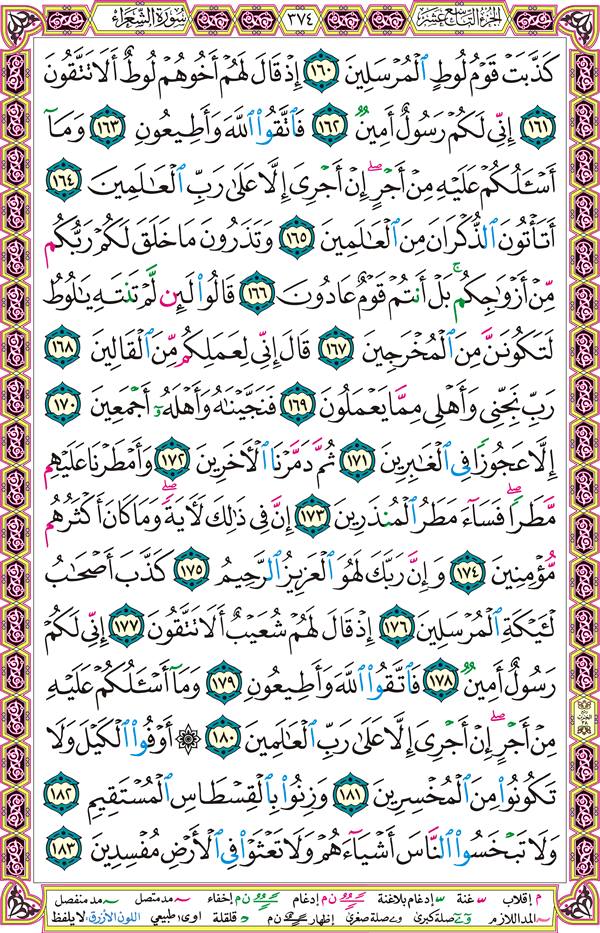 الجزء التاسع عشر ٣٧٤ سورة الشعراء
كَذَّبَتْ قَوْمُ لُوطٍ ٱلْمُرْسَلِينَ ١٦٠ إِذْ قَالَ لَهُمْ أَخُوهُمْ لُوطٌ أَلَا تَتَّقُونَ
١٦١ إِنِّى لَكُمْ رَسُولٌ أَمِينٌ ١٦٢ فَٱتَّقُوا۟ ٱللَّهَ وَأَطِيعُونِ ١٦٣ وَمَآ
أَسْـَٔلُكُمْ عَلَيْهِ مِنْ أَجْرٍ ۖ إِنْ أَجْرِىَ إِلَّا عَلَىٰ رَبِّ ٱلْعَـٰلَمِينَ ١٦٤
أَتَأْتُونَ ٱلذُّكْرَانَ مِنَ ٱلْعَـٰلَمِينَ ١٦٥ وَتَذَرُونَ مَا خَلَقَ لَكُمْ رَبُّكُم
مِّنْ أَزْوَٰجِكُم ۚ بَلْ أَنتُمْ قَوْمٌ عَادُونَ ١٦٦ قَالُوا۟ لَئِن لَّمْ تَنتَهِ يَـٰلُوطُ
لَتَكُونَنَّ مِنَ ٱلْمُخْرَجِينَ ١٦٧ قَالَ إِنِّى لِعَمَلِكُم مِّنَ ٱلْقَالِينَ ١٦٨
رَبِّ نَجِّنِى وَأَهْلِى مِمَّا يَعْمَلُونَ ١٦٩ فَنَجَّيْنَـٰهُ وَأَهْلَهُۥٓ أَجْمَعِينَ ١٧٠
إِلَّا عَجُوزًا فِى ٱلْغَـٰبِرِينَ ١٧١ ثُمَّ دَمَّرْنَا ٱلْـَٔاخَرِينَ ١٧٢ وَأَمْطَرْنَا عَلَيْهِم
مَّطَرًا ۖ فَسَآءَ مَطَرُ ٱلْمُنذَرِينَ ١٧٣ إِنَّ فِى ذَٰلِكَ لَـَٔايَةً ۖ وَمَا كَانَ أَكْثَرُهُم
مُّؤْمِنِينَ ١٧٤ وَإِنَّ رَبَّكَ لَهُوَ ٱلْعَزِيزُ ٱلرَّحِيمُ ١٧٥ كَذَّبَ أَصْحَـٰبُ
لْـَٔيْكَةِ ٱلْمُرْسَلِينَ ١٧٦ إِذْ قَالَ لَهُمْ شُعَيْبٌ أَلَا تَتَّقُونَ ١٧٧ إِنِّى لَكُمْ
رَسُولٌ أَمِينٌ ١٧٨ فَٱتَّقُوا۟ ٱللَّهَ وَأَطِيعُونِ ١٧٩ وَمَآ أَسْـَٔلُكُمْ عَلَيْهِ
مِنْ أَجْرٍ ۖ إِنْ أَجْرِىَ إِلَّا عَلَىٰ رَبِّ ٱلْعَـٰلَمِينَ ١٨٠ ۞ أَوْفُوا۟ ٱلْكَيْلَ وَلَا
تَكُونُوا۟ مِنَ ٱلْمُخْسِرِينَ ١٨١ وَزِنُوا۟ بِٱلْقِسْطَاسِ ٱلْمُسْتَقِيمِ ١٨٢
وَلَا تَبْخَسُوا۟ ٱلنَّاسَ أَشْيَآءَهُمْ وَلَا تَعْثَوْا۟ فِى ٱلْأَرْضِ مُفْسِدِينَ ١٨٣
م إقلاب غنة إدغام بلاغنة ن م إدغام ن م إخفاء مد متصل مد منفصل
المد اللازم صلة كبرى صلة صغرى إظهار قلقلة اوى: طبيعي اللون الأزرق: لا يلفظ